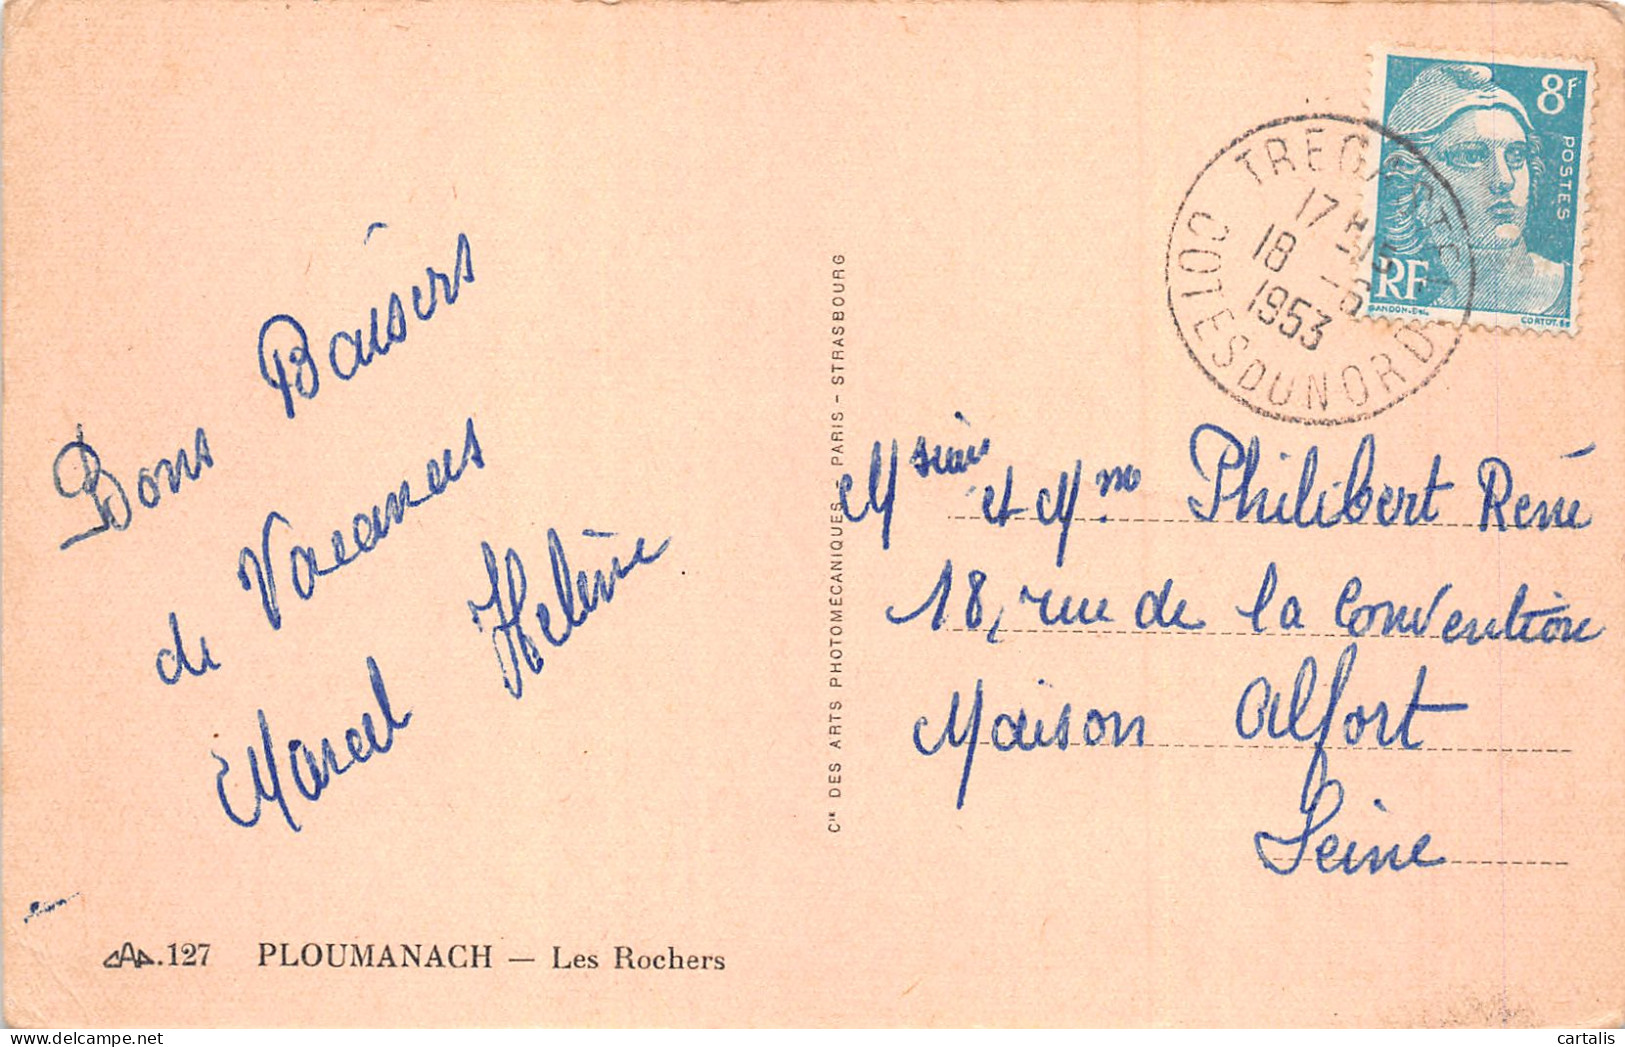 Bons Baisers
de Vacances
Marcel Helène
CAP.127 PLOUMANACH — Les Rochers
Cie DES ARTS PHOTOMÉCANIQUES - PARIS - STRASBOURG
8F
POSTES
RF
GANDON-Del.
CORTOT.Sc
TREGASTEL
17 H 15
18 -6
1953
COTES DU NORD
Msieur et Mme Philibert René
18, rue de la Convention
Maison Alfort
Seine
cartalis